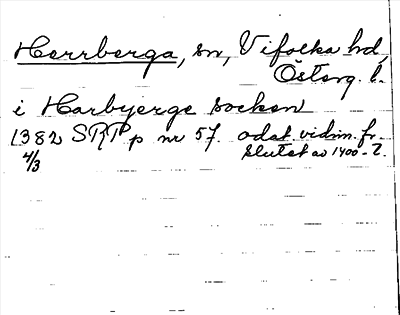 Herrberga, sn, Vifolka hd,
Österg. l.
i Harbyerge socken
1382 SRP p nr 57. odat. vidim. fr.
4/3 slutet av 1400-t.